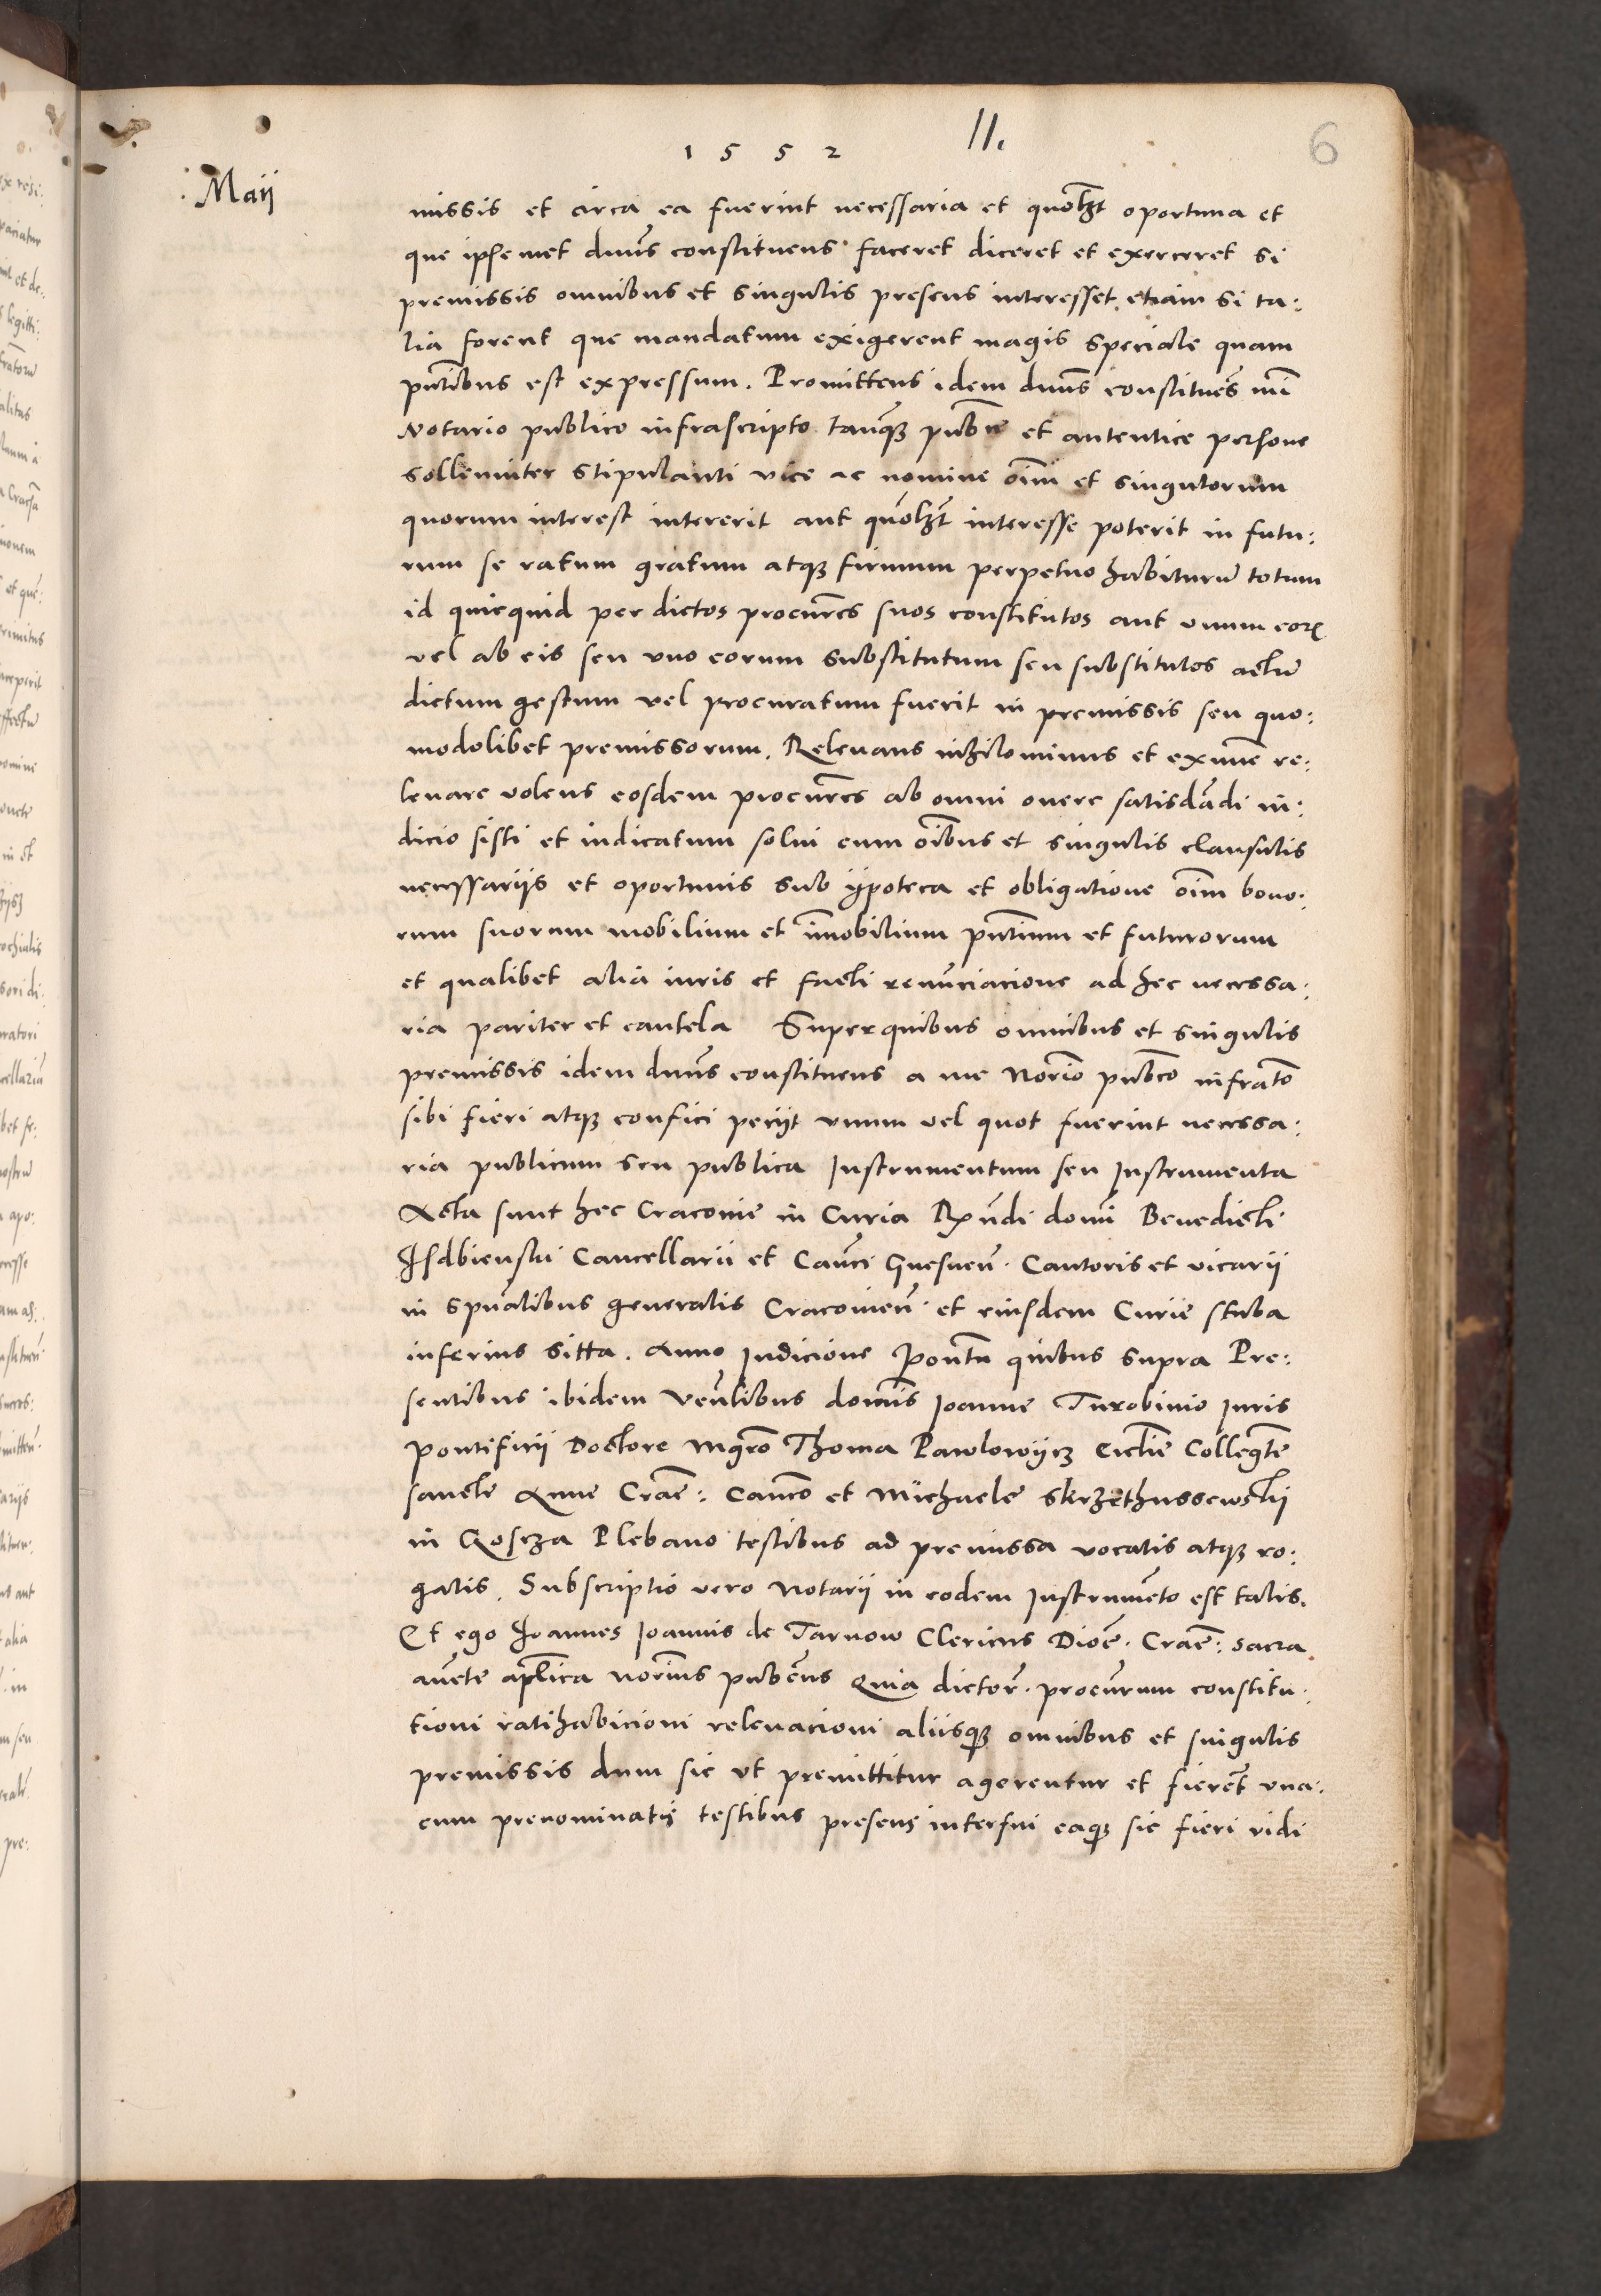 1552 11. 6
Maij
missis et circa ea fuerint necessaria et quolzt oportuna et
que ipsemet dnus constituens faceret diceret et exerceret si
premissis omnibus et singulis presens interesset etiam si ta:
lia forent que mandatum exigerent magis speciale quam
pntibus est expressum. Promittens idem dnus constitues mi
Notario publico infrascripto tanqȝ pubce et autentice persone
sollemniter stipulanti vice ac nomine oim et singulorum
quorum interest intererit aut quolzt interesse poterit in futu:
rum se ratum gratum atqȝ firmum perpetuo habiturũ totum
id quicquid per dictos procures suos constitutos aut vnum eorꝝ
vel ab eis seu vno eorum substitutum seu substitutos actũ
dictum gestum vel procuratum fuerit in premissis seu quo:
modolibet premissorum. Releuans nihilominus et exnunc re:
leuare volens eosdem procures ab omni onere satisdãdi iu:
dicio sisti et iudicatum solui cum oibus et singulis clausulis
necessariis et oportunis sub ypoteca et obligatione oim bono:
rum suorum mobilium et imobilium pntium et futurorum
et qualibet alia iuris et facti renũciacione ad hec necessa:
ria pariter et cautela Superquibus omnibus et singulis
premissis idem dnus constituens a me Norio pubco infrato
sibi fieri atqȝ confici peciit vnum vel quot fuerint necessa:
ria publicum seu publica Instrumentum seu Instrumenta
Acta sunt hec Cracouie in Curia Rndi domi Benedicti
Isdbienski Cancellarii et Canci Gnesnen. Cantoris et vicarii
in spualibus generalis Cracouien. et eiusdem Curie stuba
inferius sitta. Anno Indicione Pontu quibus supra Pre:
sentibus ibidem Venlibus domis Ioanne Turobinio Iuris
pontificii Doctore Mgro Thoma Pawlowijcz Ecclie Collegte
sancte Anne Crace: Canco et Michaele Skrzethussewskij
in Koscza Plebano testibus ad premissa vocatis atqȝ ro:
gatis. Subscriptio vero Notarii in eodem Instrumẽto est talis.
Et ego Ioannes Ioannis de Tarnow Clericus Dioe. Crace: sacra
aucte aplica norius pubcus Quia dictor. procurum constitu:
tioni ratihabicioni releuacioni aliisqȝ omnibus et singulis
premissis dum sic vt premittitur agerentur et fierẽt vna:
cum prenominatis testibus presens interfui eaqȝ sic fieri vidi